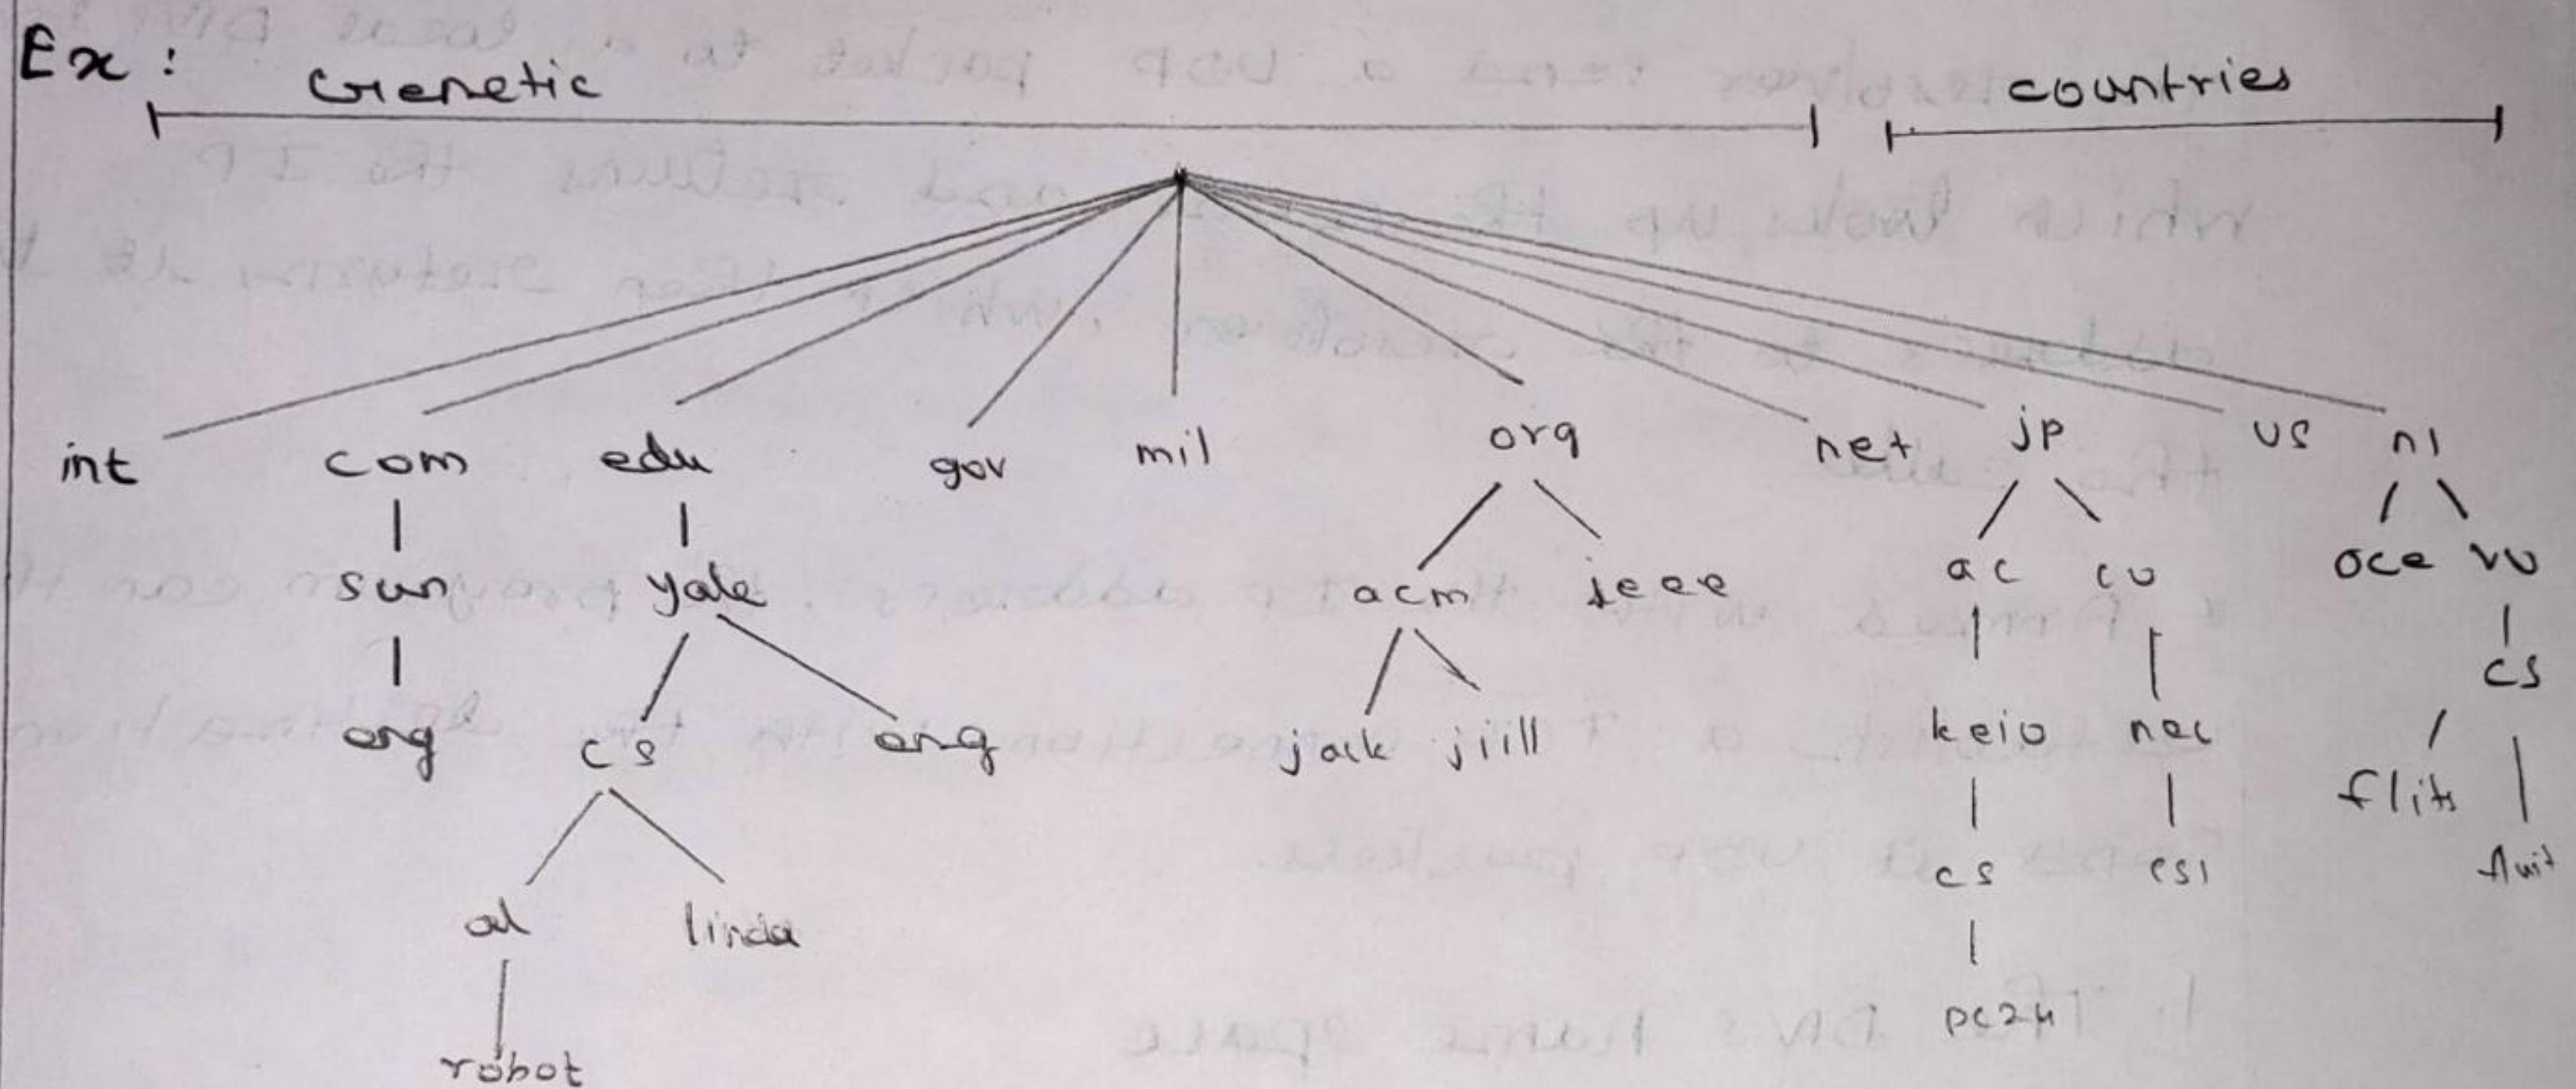 Ex :
Genetic countries
int com edu gov mil org net jp us nl
sun yale acm ieee ac co oce vu
cs
eng cs eng jack jiill keio nec
flits fluit
cs csl
al linda
pc24
robot